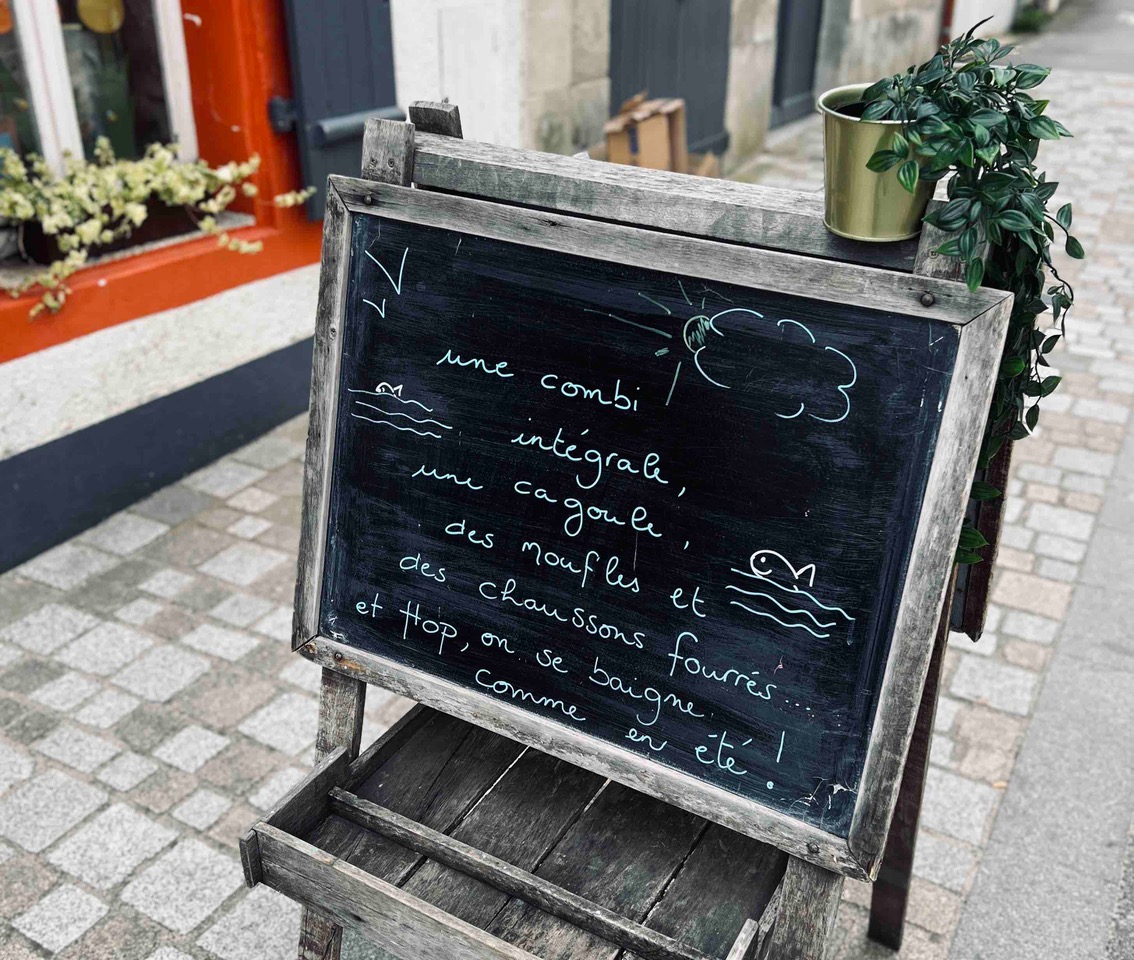 une combi
intégrale,
une cagoule,
des moufles et
des chaussons fourrés...
et Hop, on se baigne
comme en été !